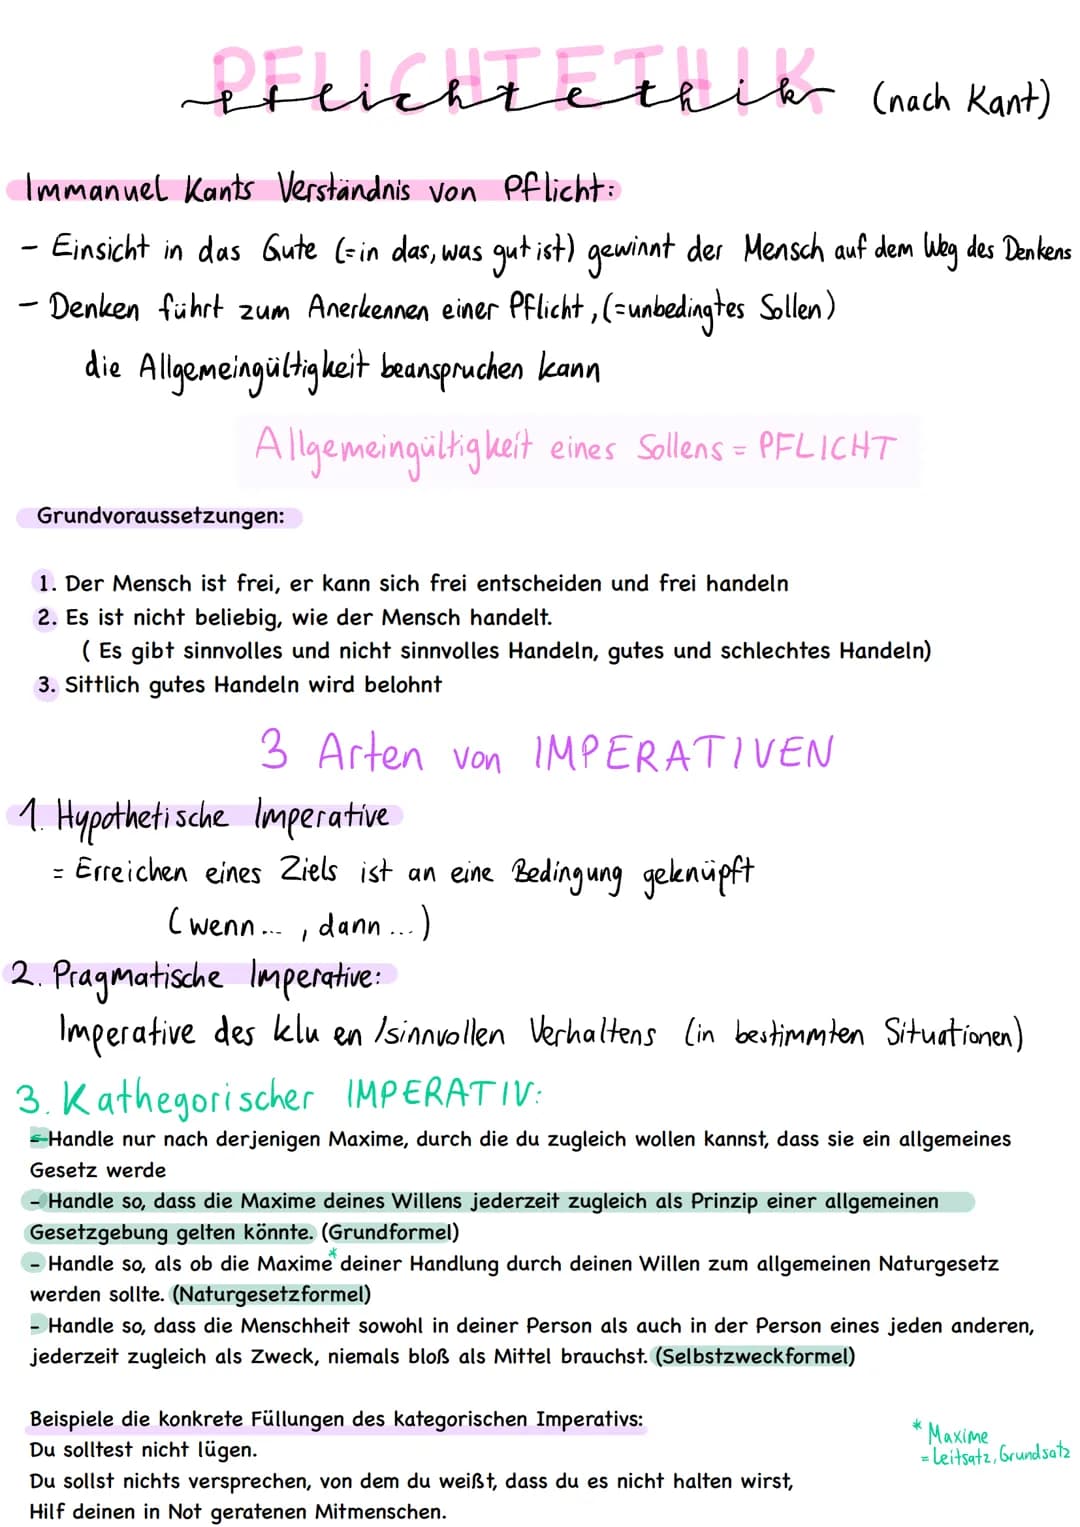 PFLICHTETHIK
Pflichtethik (nach Kant)
Immanuel Kants Verständnis von Pflicht:
- Einsicht in das Gute (=in das, was gut ist) gewinnt der Mensch auf dem Weg des Denkens
- Denken führt zum Anerkennen einer Pflicht, (=unbedingtes Sollen)
die Allgemeingültigkeit beanspruchen kann
Allgemeingültigkeit eines Sollens = PFLICHT
Grundvoraussetzungen:
1. Der Mensch ist frei, er kann sich frei entscheiden und frei handeln
2. Es ist nicht beliebig, wie der Mensch handelt.
( Es gibt sinnvolles und nicht sinnvolles Handeln, gutes und schlechtes Handeln)
3. Sittlich gutes Handeln wird belohnt
3 Arten von IMPERATIVEN
1. Hypothetische Imperative
= Erreichen eines Ziels ist an eine Bedingung geknüpft
(wenn ... , dann ...)
2. Pragmatische Imperative:
Imperative des klu en /sinnvollen Verhaltens (in bestimmten Situationen)
3. Kathegorischer IMPERATIV:
-Handle nur nach derjenigen Maxime, durch die du zugleich wollen kannst, dass sie ein allgemeines
Gesetz werde
-Handle so, dass die Maxime deines Willens jederzeit zugleich als Prinzip einer allgemeinen
Gesetzgebung gelten könnte. (Grundformel)
- Handle so, als ob die Maxime* deiner Handlung durch deinen Willen zum allgemeinen Naturgesetz
werden sollte. (Naturgesetzformel)
- Handle so, dass die Menschheit sowohl in deiner Person als auch in der Person eines jeden anderen,
jederzeit zugleich als Zweck, niemals bloß als Mittel brauchst. (Selbstzweckformel)
Beispiele die konkrete Füllungen des kategorischen Imperativs:
Du solltest nicht lügen.
Du sollst nichts versprechen, von dem du weißt, dass du es nicht halten wirst,
Hilf deinen in Not geratenen Mitmenschen.
* Maxime
= Leitsatz, Grundsatz